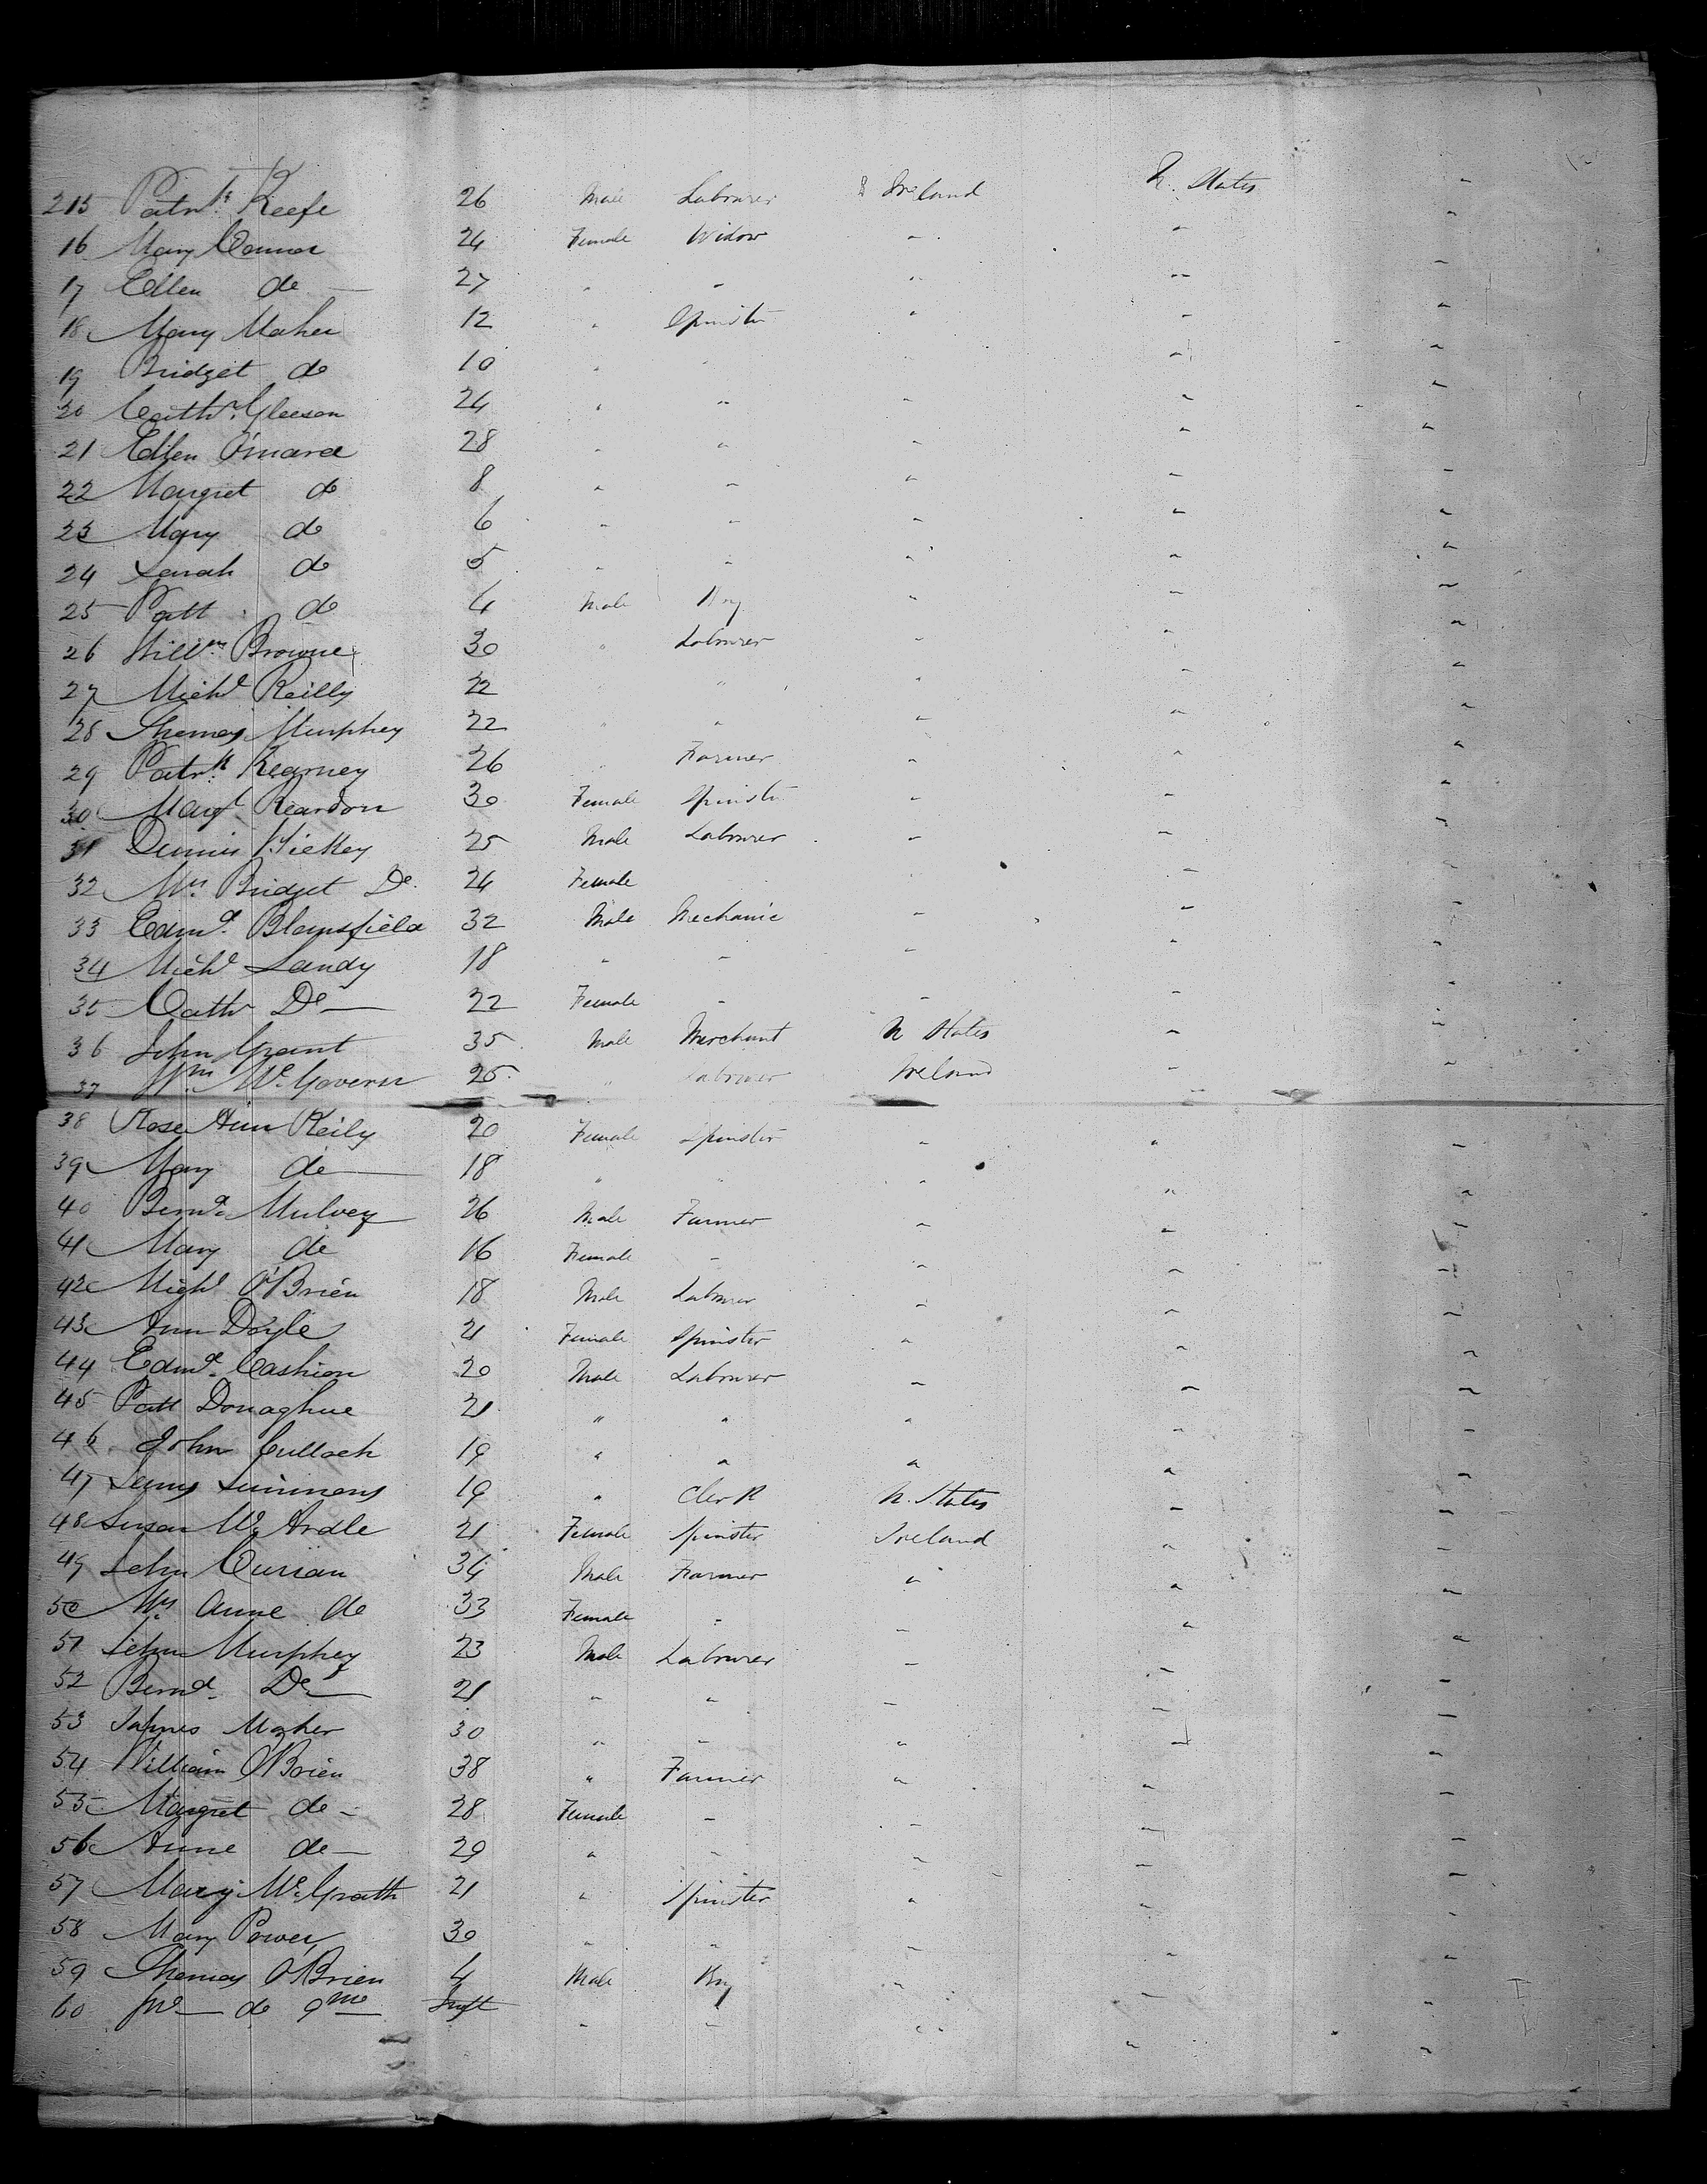 215 Patrk Keefe 26 Male Labourer Ireland U. States "
16 Mary Connor 24 Female Widow " " "
17 Ellen do 27 " " " " "
18 Mary Maher 12 " Spinstr " " "
19 Bridget do 10 " " " " "
20 Cathr Gleeson 24 " " " " "
21 Ellen O'mara 28 " " " " "
22 Margret do 8 " " " " "
23 Mary do 6 " " " " "
24 Sarah do 5 " " " " "
25 Patt do 4 Male Boy " " "
26 Willm Browne 30 " Labourer " " "
27 Michl Reilly 22 " " " " "
28 Thomas Murphey 22 " " " " "
29 Patrk Kearney 26 " Farmer " " "
30 Margt Reardon 30 Female Spinstr " " "
31 Dennis Hickey 25 Male Labourer " " "
32 Mrs Bridget Do 24 Female " " "
33 Edmd Blomsfield 32 Male Mechanic " " "
34 Michl Landy 18 " " " " "
35 Cathr Do 22 Female " " " "
36 John Grant 35 Male Merchant U States " "
37 Wm McGovern 25 " Labourer Ireland " "
38 Rose Ann Reily 20 Female Spinster " " "
39 Mary do 18 " " " " "
40 Bernd Mulvey 26 Male Farmer " " "
41 Mary do 16 Female " " " "
42 Michl O'Brien 18 Male Labourer " " "
43 Ann Doyle 21 Female Spinster " " "
44 Edmd Cashion 20 Male Labourer " " "
45 Patt Donaghue 21 " " " " "
46 John Cullock 19 " " " " "
47 Simmons 19 " Clerk U. States " "
48 Susan McArdle 21 Female Spinster Ireland " "
49 John Curran 34 Male Farmer " " "
50 Mrs Anne do 33 Female " " " "
51 John Murphey 23 Male Labourer " " "
52 Bernd Do 21 " " " " "
53 James Maher 30 " " " " "
54 William O'Brien 38 " Farmer " " "
55 Margret do 28 Female " " " "
56 Anne do 29 " " " " "
57 Mary McGrath 21 " Spinster " " "
58 Mary Power 30 " " " " "
59 Thomas O'Brien 4 Male Boy " " "
60 do 9 mo Inft " " " " "